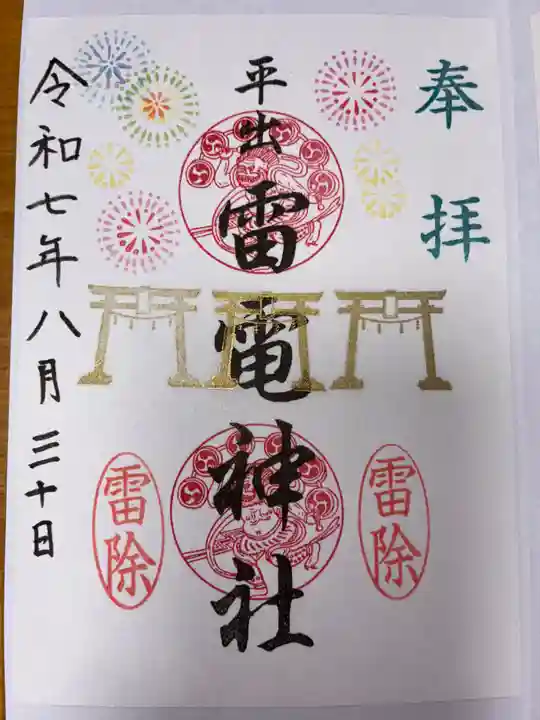 奉拝
平出雷電神社
雷除
雷除
令和七年八月三十日